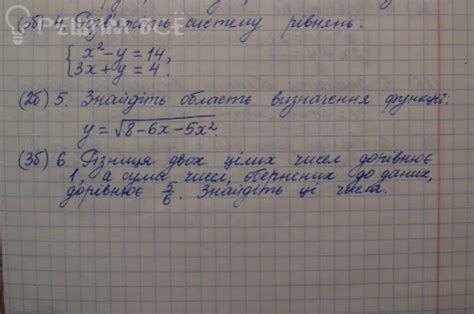 РЕШИМ ВСЁ
(3б) 4. Розв'яжіть систему рівнянь:
{ x² - y = 14,
3x + y = 4.
(2б) 5. Знайдіть область визначення функції:
y = √8 - 6x - 5x².
(3б) 6. Різниця двох цілих чисел дорівнює
1, а сума чисел, обернених до даних,
дорівнює 5/6. Знайдіть ці числа.